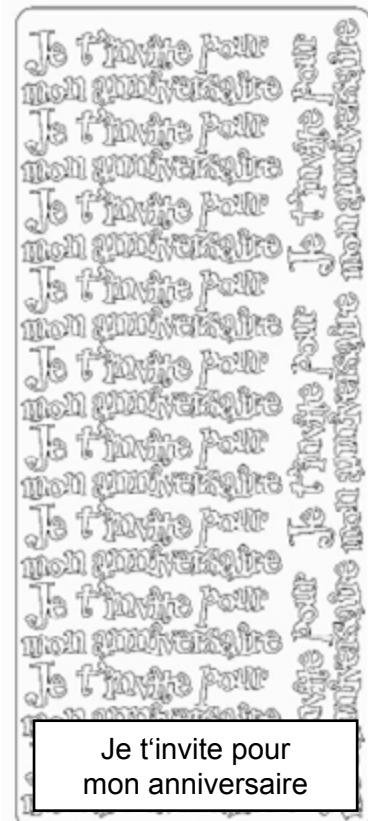 Je t'invite pour
mon anniversaire
Je t'invite pour
mon anniversaire
Je t'invite pour
mon anniversaire
Je t'invite pour
mon anniversaire
Je t'invite pour
mon anniversaire
Je t'invite pour
mon anniversaire
Je t'invite pour
mon anniversaire
Je t'invite pour
mon anniversaire
Je t'invite pour
Je t'invite pour
mon anniversaire
Je t'invite pour
mon anniversaire
pour
Je t‘invite pour
mon anniversaire